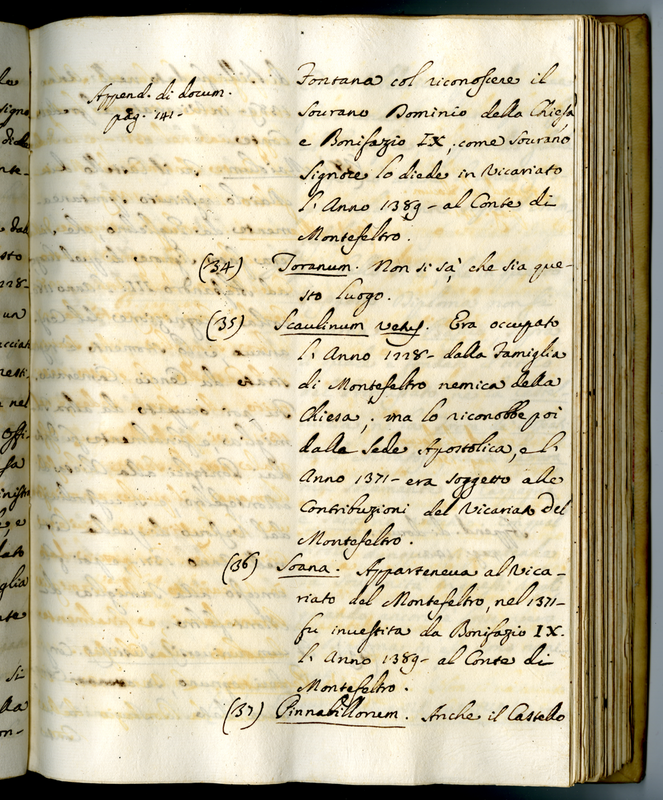 Append. di docum.
pag. 141-
Fontana col riconoscere il
Sourano Dominio della Chiesa
e Bonifazio IX, come Sourano
Signore lo diede in Vicariato
l'Anno 1389- al Conte di
Montefeltro.
(34) Toranum. Non si sà, che sia que-
sto luogo.
(35) Scaulinum vetus. Era occupato
l'Anno 1228- dalla Famiglia
di Montefeltro nemica della
Chiesa, ma lo riconobbe poi
dalla Sede Apostolica, e l'
Anno 1371- era soggetto alle
Contribuzioni del Vicariato del
Montefeltro.
(36) Soana. Apparteneva al Vica-
riato del Montefeltro, nel 1371-
fu investita da Bonifazio IX.
l'Anno 1389- al Conte di
Montefeltro.
(37) Pinnabillorum. Anche il Castello